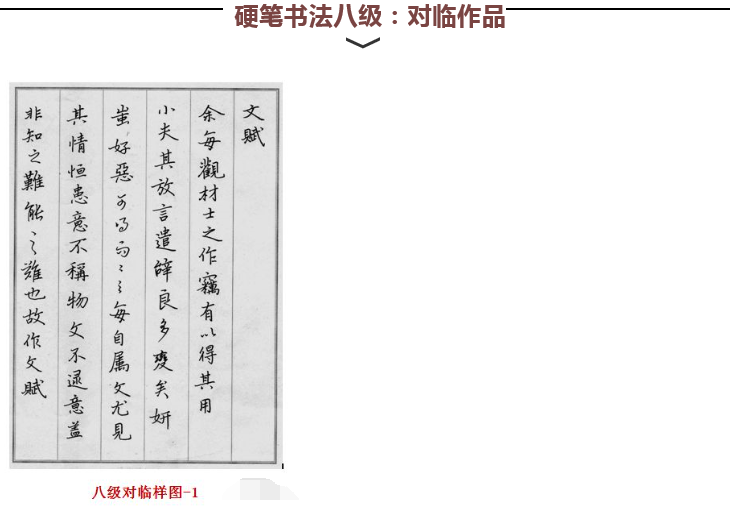 硬笔书法八级：对临作品
文賦
余每觀材士之作竊有以得其用
心夫其放言遣辭良多變矣妍
蚩好惡可得而言每自属文尤見
其情恒患意不稱物文不逮意盖
非知之難能之難也故作文賦
八级对临样图-1